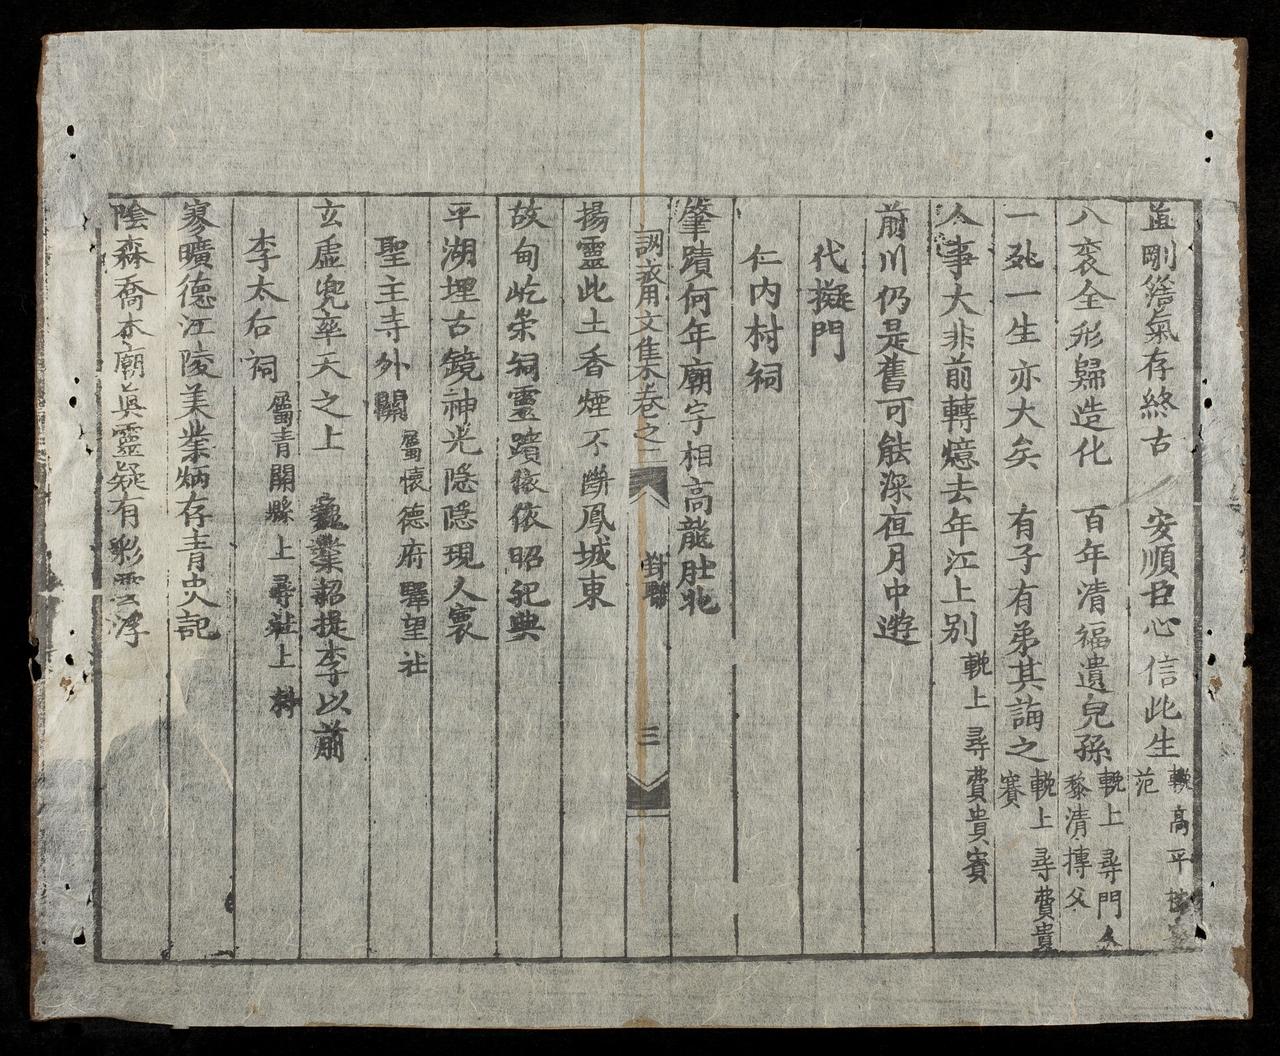 剛簷氣存終古 安順臣心信此生 輓高平
范
八袠全形歸造化 百年清福遺兒孫 輓上尋門人
黎清摶父
一死一生亦大矣 有子有弟其誨之 輓上尋費貴
賽
人事大非前轉憶去年江上別 輓上尋費貴賽
前川仍是舊可能深夜月中遊
代擬門
仁內村祠
肇蹟何年廟宇相高龍肚北
訓敎用文集卷之二 對聯 三
揚靈此土香煙不斷鳳城東
故甸屹崇祠靈蹟依依昭祀典
平湖埋古鏡神光隱隱現人寰
聖主寺外關 屬懷德府驛望社
玄虛兜率天之上 巍業招提李以前
李太右祠 屬青關縣上尋社上村
寥曠德江陵美業炳存青史記
陰森喬木廟眞靈疑有彩雲浮